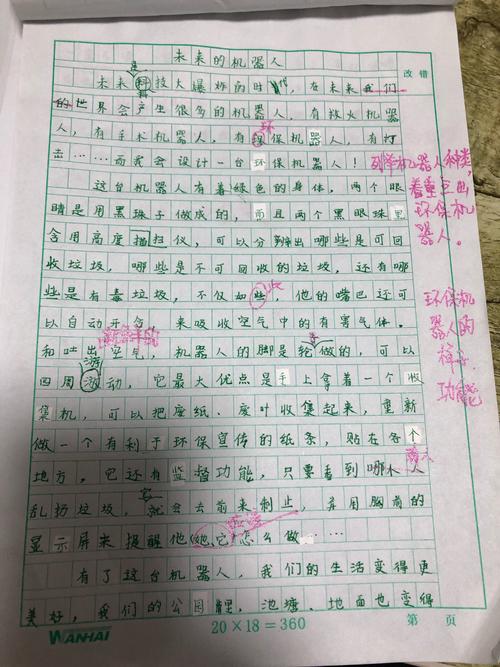 未来的机器人
改错
未来是科技大爆炸的时代，在未来我们
的世界会产生很多的机器人，有救火机器
人，有手术机器人，有环保机器人，有打
击……而我会设计一台环保机器人！
列举机器人种类，
着重突出
环保机
器人。
这台机器人有着绿色的身体，两个眼
睛是用黑珠子做成的，而且两个黑眼珠里
含用高度扫描仪，可以分辨出哪些是可回
收垃圾，哪些是不可回收的垃圾，还有哪
些是有毒垃圾，不仅如此，他的嘴巴还可
以自动开合，来吸收空气中的有害气体。
环保机
器人的
样子、
功能
和吐出空气，机器人的脚是轮子做的，可以
四周游动，它最大优点是手上拿着一个收
集机，可以把废纸、废叶收集起来，重新
做一个有利于环保宣传的纸条，贴在各个
地方，它还有监督功能，只要看到哪个人
乱扔垃圾，它就会去前来制止，并用胸前的
显示屏来提醒他怎么做……
有了这台机器人，我们的生活变得更
美好，我们的公园里，池塘、地面也变得
WANHAI
20×18=360
第 页